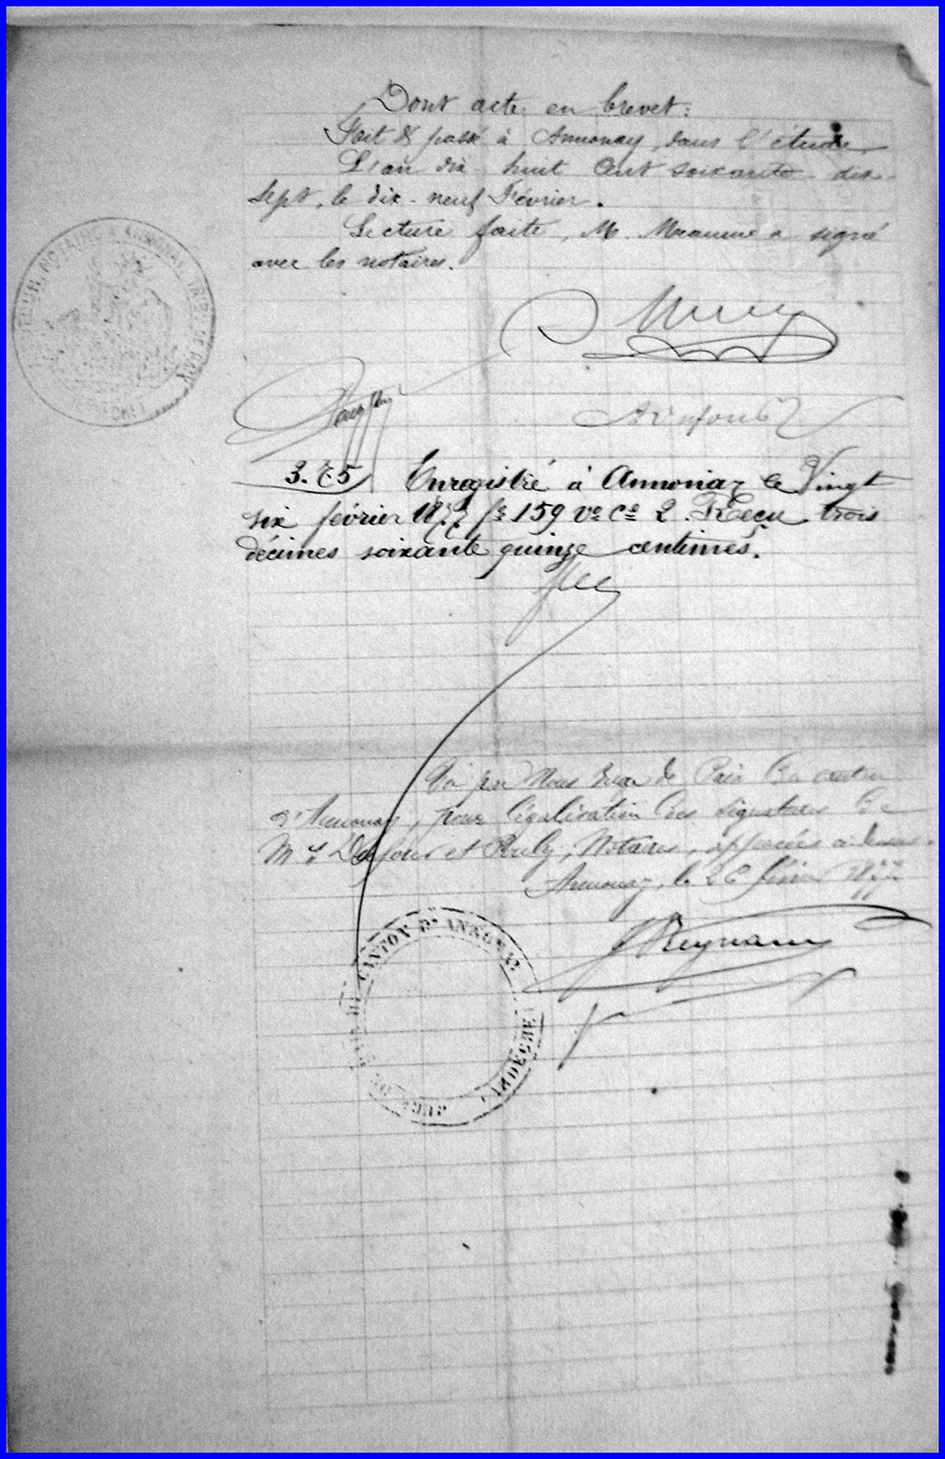 Dont acte en brevet:
Fait & passé à Annonay, dans l'étude,
L'an dix huit cent soixante-dix-
sept, le dix-neuf Février.
Lecture faite, M. a signé
avec les notaires.
3.75 Enregistré à Annonay le Vingt
six février 1877 fº 159 vº Cº 2. Reçu trois
décimes soixante quinze centimes.
Vu par Nous Juge de Paix du canton
d'Annonay, pour légalisation des signatures de
Mrs et Notaires, apposées ci-dessus.
Annonay, le 26 février 1877
CANTON D'ANNONAY
ARDÈCHE
NOTAIRE À ANNONAY